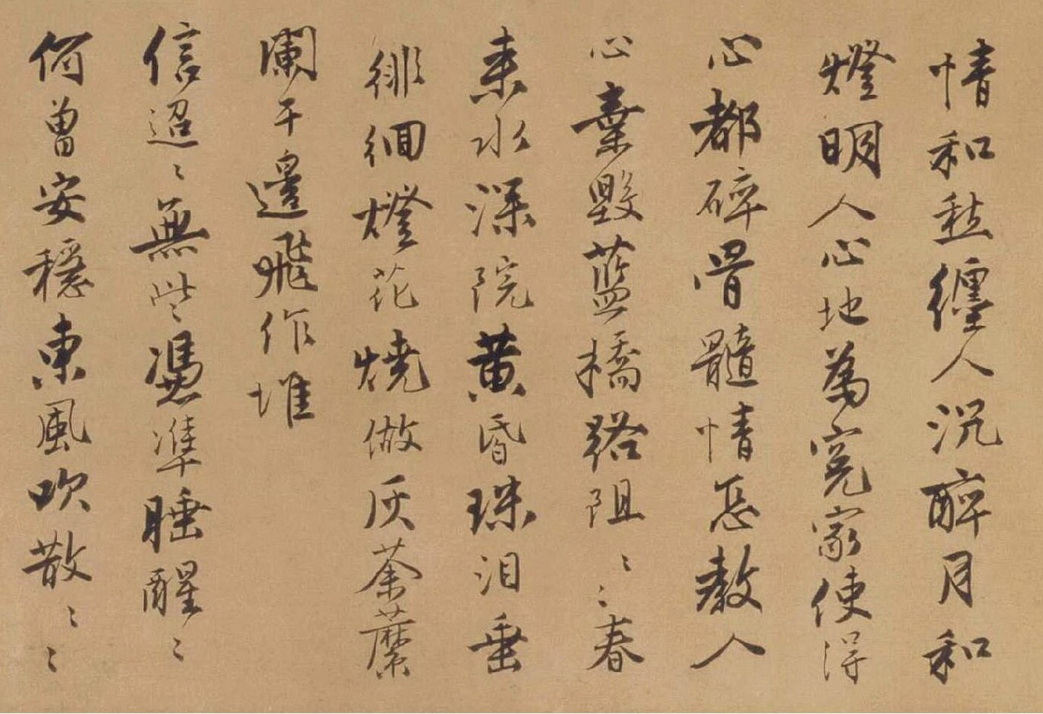 情和愁纏人沉醉月和
燈明人心地為寃家使得
心都碎碎骨髓情忍教人
心棄毀藍橋路阻〻〻春
来水深院黄昏珠泪垂
徘徊燈花燒做灰荼蘼
闌干邉飛作堆
信迢〻無些憑準睡醒〻
何曽安穩東風吹散〻〻